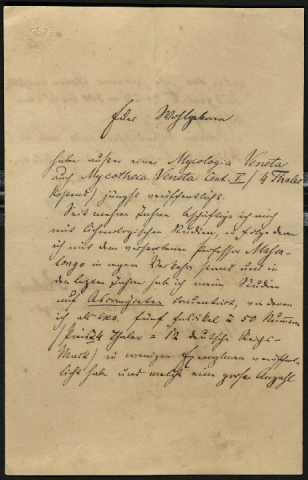 Euer Wohlgeboren
habe außer einer Mycologia Veneta
auch Mycotheca Veneta Cent. I / 4 Thaler
kostend / jüngst veröffentlicht.
Seit mehren Jahren beschäftige ich mich
mit lichenologischen Studien u. folge deren
ich mit dem verstorbenen Professor Massa-
longo in regem Verkehr stand und in
den letzten Jahren hab ich mein Studium
auf
ich als exs. fünf Fascikel à 50 Nummern
/ Preis Thaler = 12 deutsche Reichs-
Mark / in wenigen Exemplaren veröffent-
licht habe und welche eine große Anzahl